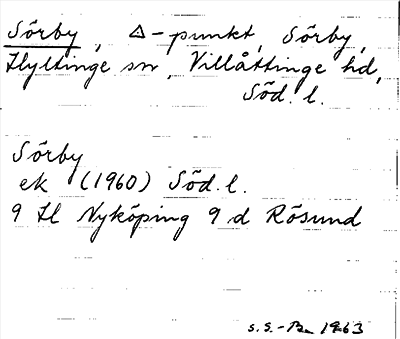 Sörby, △-punkt, Sörby,
Hyltinge sn, Villåttinge hd,
Söd. l.
Sörby
ek (1960) Söd. l.
9 H Nyköping 9 d Rösund
S.S.-Bn 1963